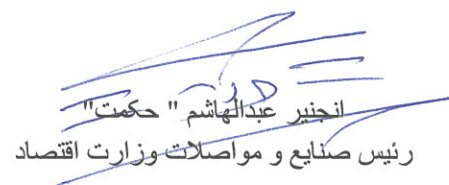 انجنیر عبدالهاشم " حکمت"
رئیس صنایع و مواصلات وزارت اقتصاد